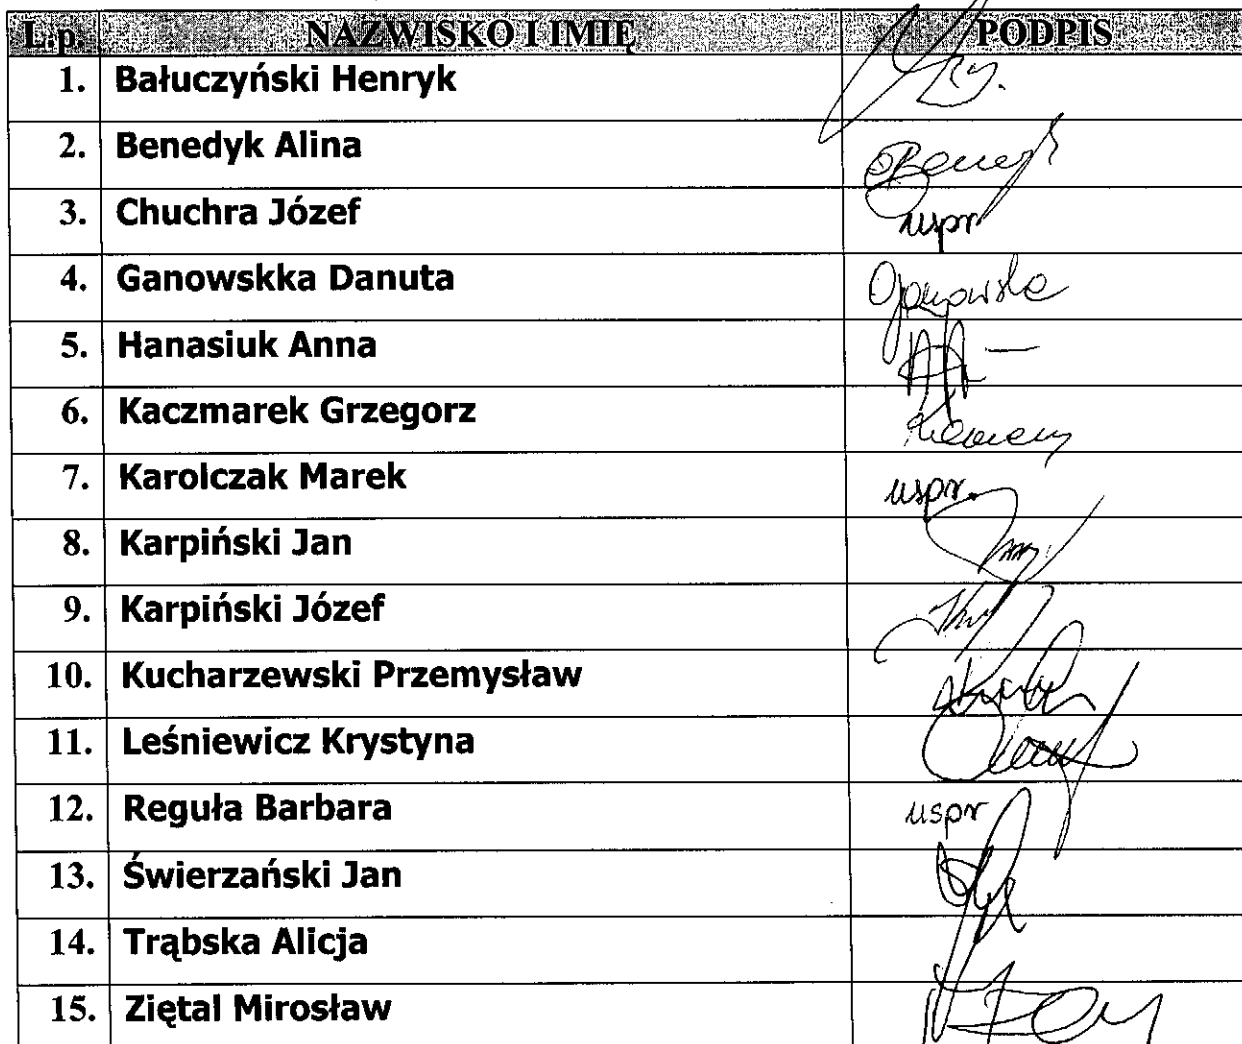 L.p. NAZWISKO I IMIĘ PODPIS
1. Bałuczyński Henryk
2. Benedyk Alina
3. Chuchra Józef uspr
4. Ganowskka Danuta
5. Hanasiuk Anna
6. Kaczmarek Grzegorz
7. Karolczak Marek uspr.
8. Karpiński Jan
9. Karpiński Józef
10. Kucharzewski Przemysław
11. Leśniewicz Krystyna
12. Reguła Barbara uspr
13. Świerzański Jan
14. Trąbska Alicja
15. Ziętal Mirosław